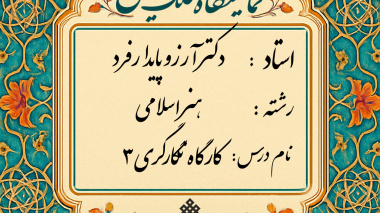 استاد : دکتر آرزو پایدارفرد
رشته : هنر اسلامی
نام درس: کارگاه نگارگری ۳